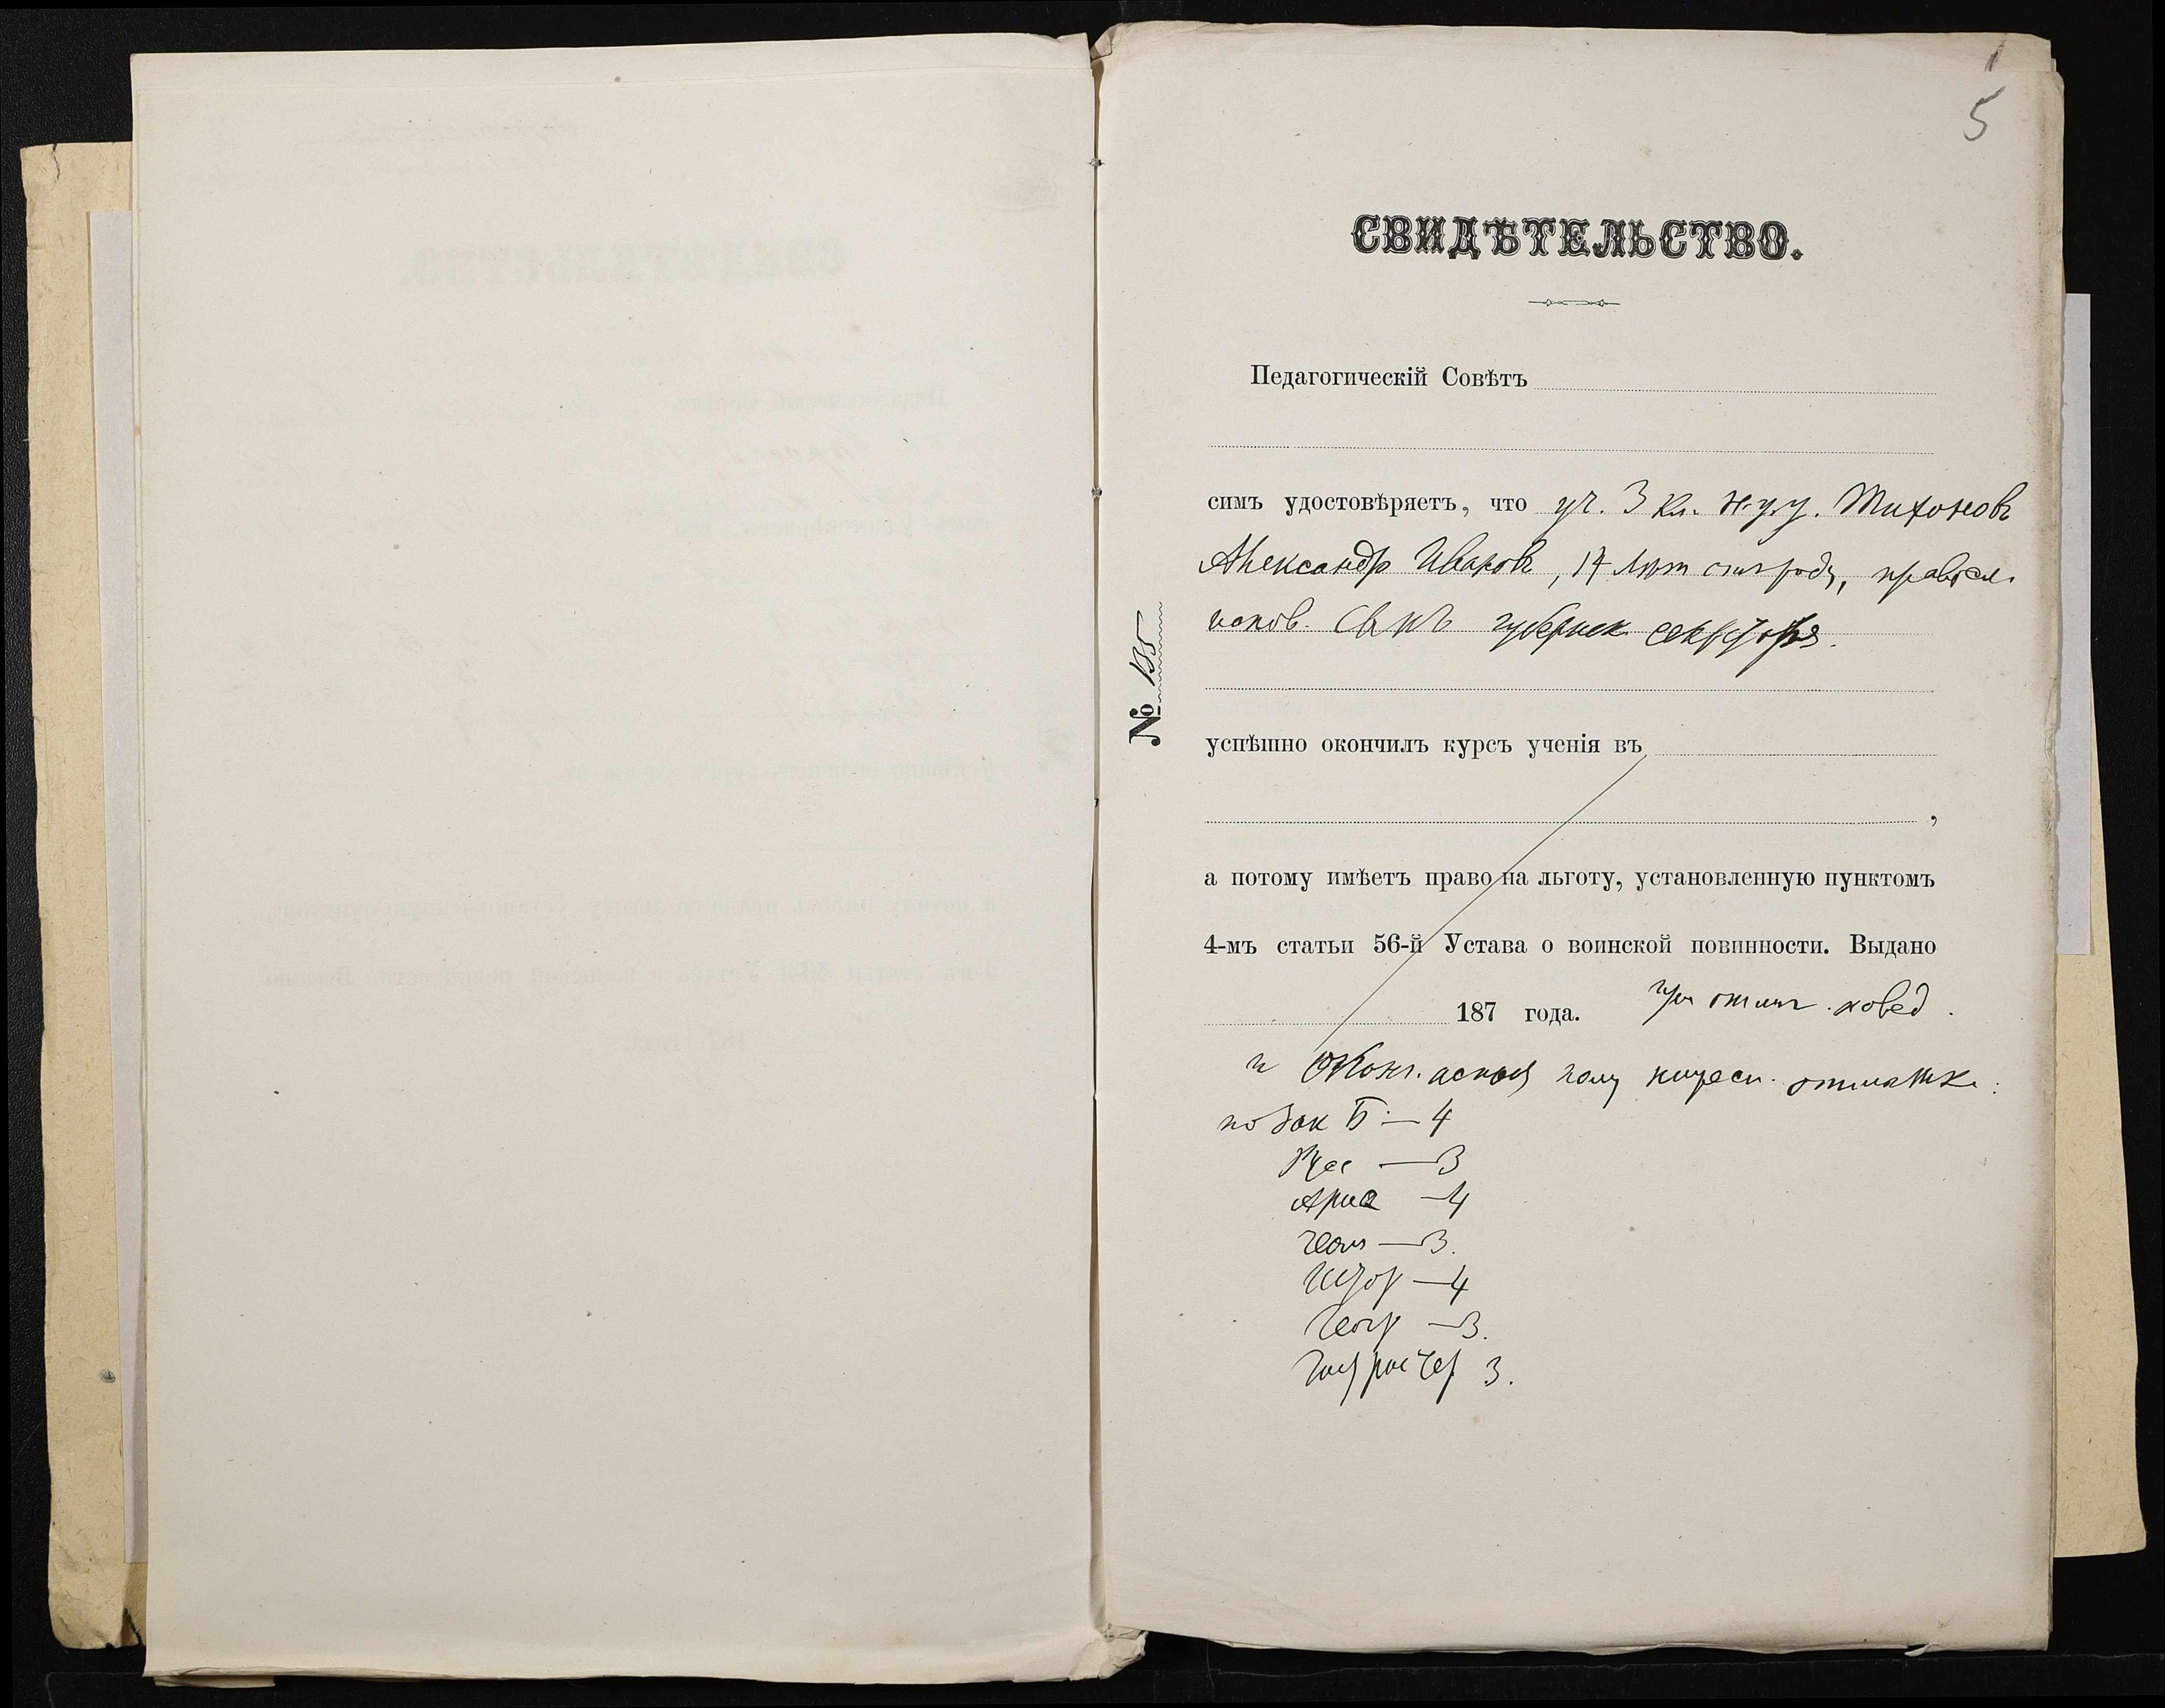 5
СВИДѢТЕЛЬСТВО.
Педагогическій Совѣтъ
симъ удостовѣряетъ, что уч. 3 кл. Тихоновъ
Александръ Ивановъ, 17 лѣтъ отъ роду, правосл.
испов. сынъ губернск. секретаря.
№ 135
успѣшно окончилъ курсъ ученія въ
,
а потому имѣетъ право на льготу, установленную пунктомъ
4-мъ статьи 56-й Устава о воинской повинности. Выдано
187 года. при отличн. повед.
и
по Зак Б — 4
Рус — 3
Ариѳ — 4
Геом — 3.
Истор — 4
Геогр — 3.
3.